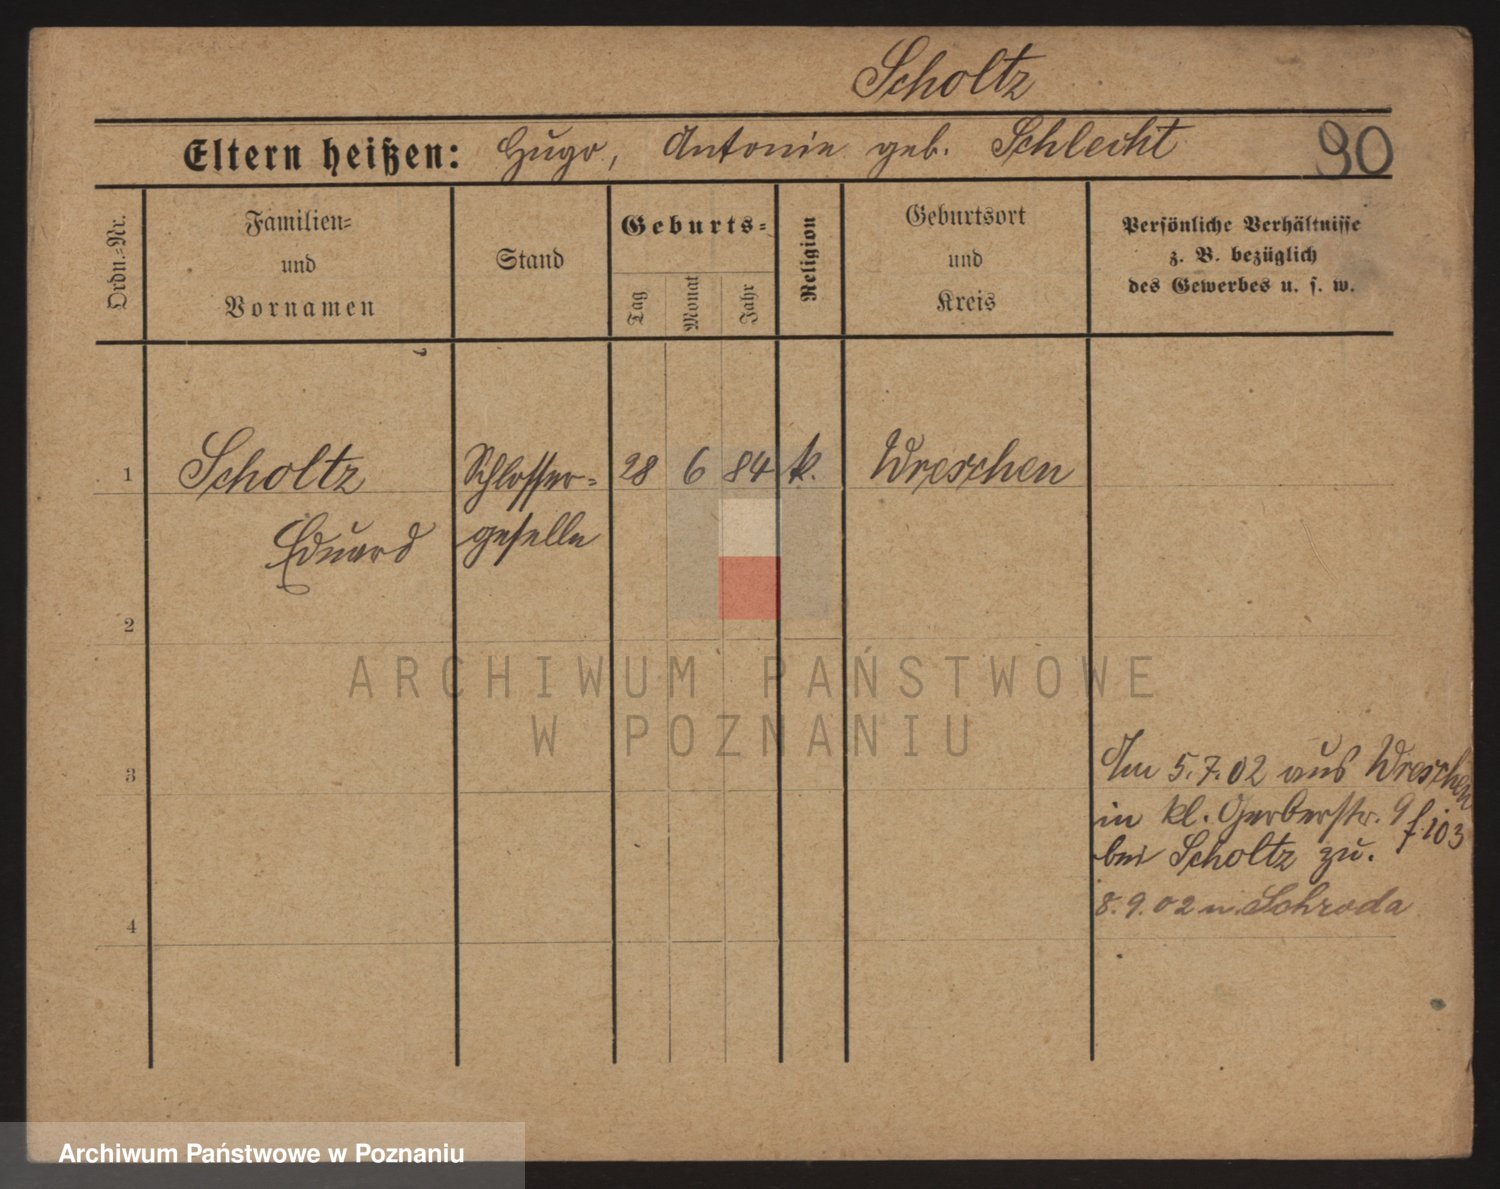 Scholtz
Eltern heißen: Hugo, Antonie geb. Schlecht
90
Ordn.=Nr.
Familien=
und
Vornamen
Stand
Geburts=
Tag
Monat
Jahr
Religion
Geburtsort
und
Kreis
Persönliche Verhältnisse
z. B. bezüglich
des Gewerbes u. s. w.
1 Scholtz Schlosser= 28 6 84 k. Wreschen
Eduard geselle
2
3
4
Am 5.7.02 aus Wreschen
in kl. Gerberstr. 9
bei Scholtz zu.
8.9.02 n. Schroda
ARCHIWUM PAŃSTWOWE
W POZNANIU
Archiwum Państwowe w Poznaniu